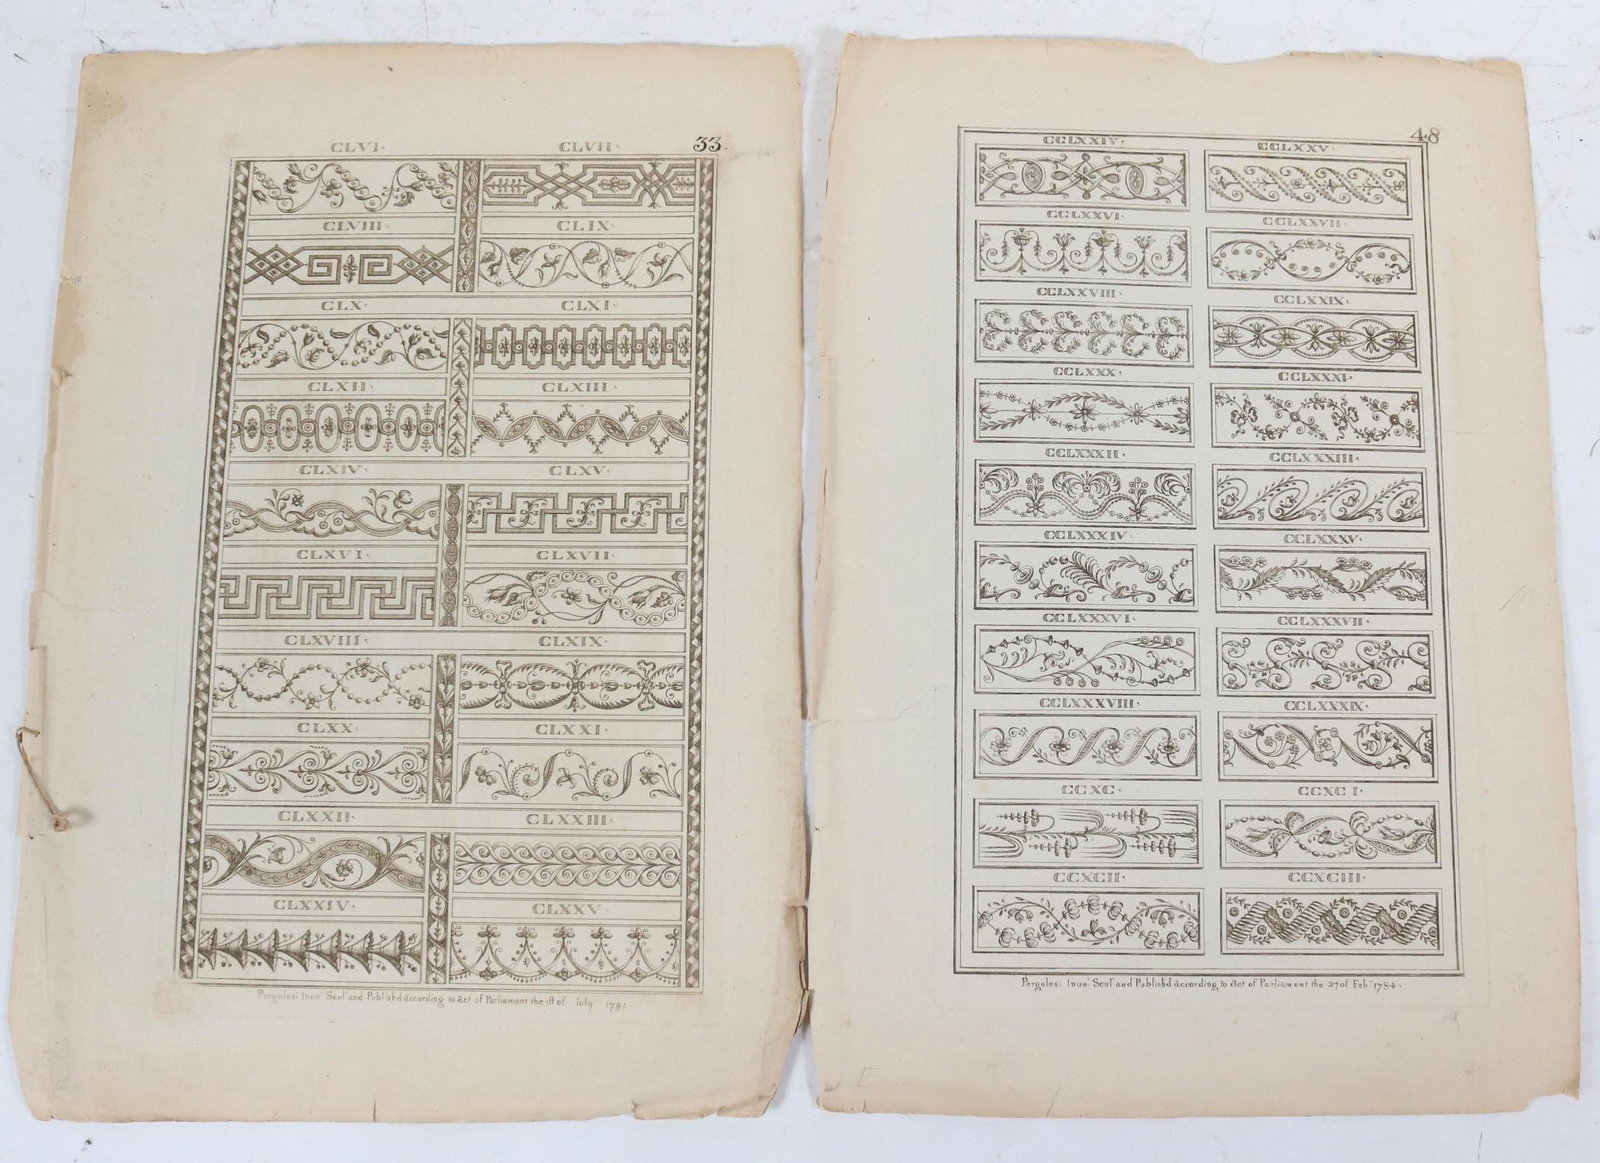 CLVI· CLVII· 33.
CLVIII· CLIX·
CLX· CLXI·
CLXII· CLXIII·
CLXIV· CLXV·
CLXVI· CLXVII·
CLXVIII· CLXIX·
CLXX· CLXXI·
CLXXII· CLXXIII·
CLXXIV· CLXXV·
Pergolesi Inve: Scul: and Publish'd according to Act of Parliament the 1st of July 1781
48
CCLXXIV· CCLXXV·
CCLXXVI· CCLXXVII·
CCLXXVIII· CCLXXIX·
CCLXXX· CCLXXXI·
CCLXXXII· CCLXXXIII·
CCLXXXIV· CCLXXXV·
CCLXXXVI· CCLXXXVII·
CCLXXXVIII· CCLXXXIX·
CCXC· CCXCI·
CCXCII· CCXCIII·
Pergolesi Inve: Scul: and Publish'd according to Act of Parliament the 27 of Feb: 1784·
E